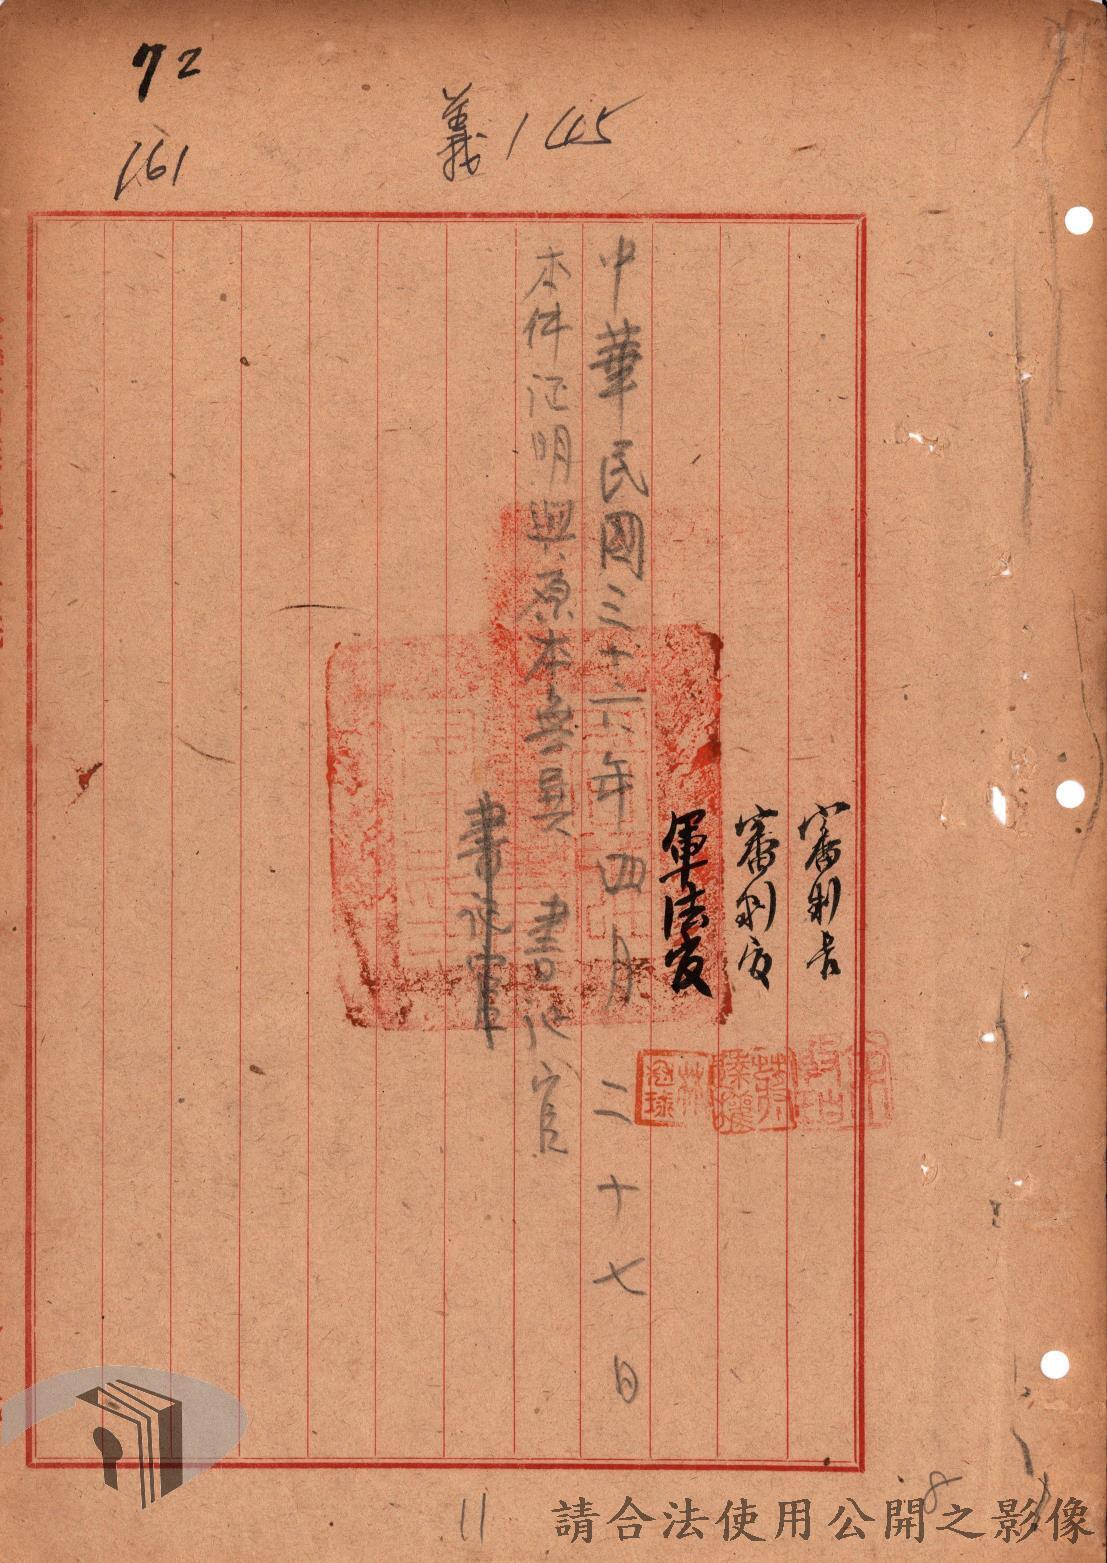 72
161
義145
審判長
審判官
軍法官
中華民國三十六年四月二十七日
本件证明與原本無異 書记官
書记官
林
11
8
請合法使用公開之影像